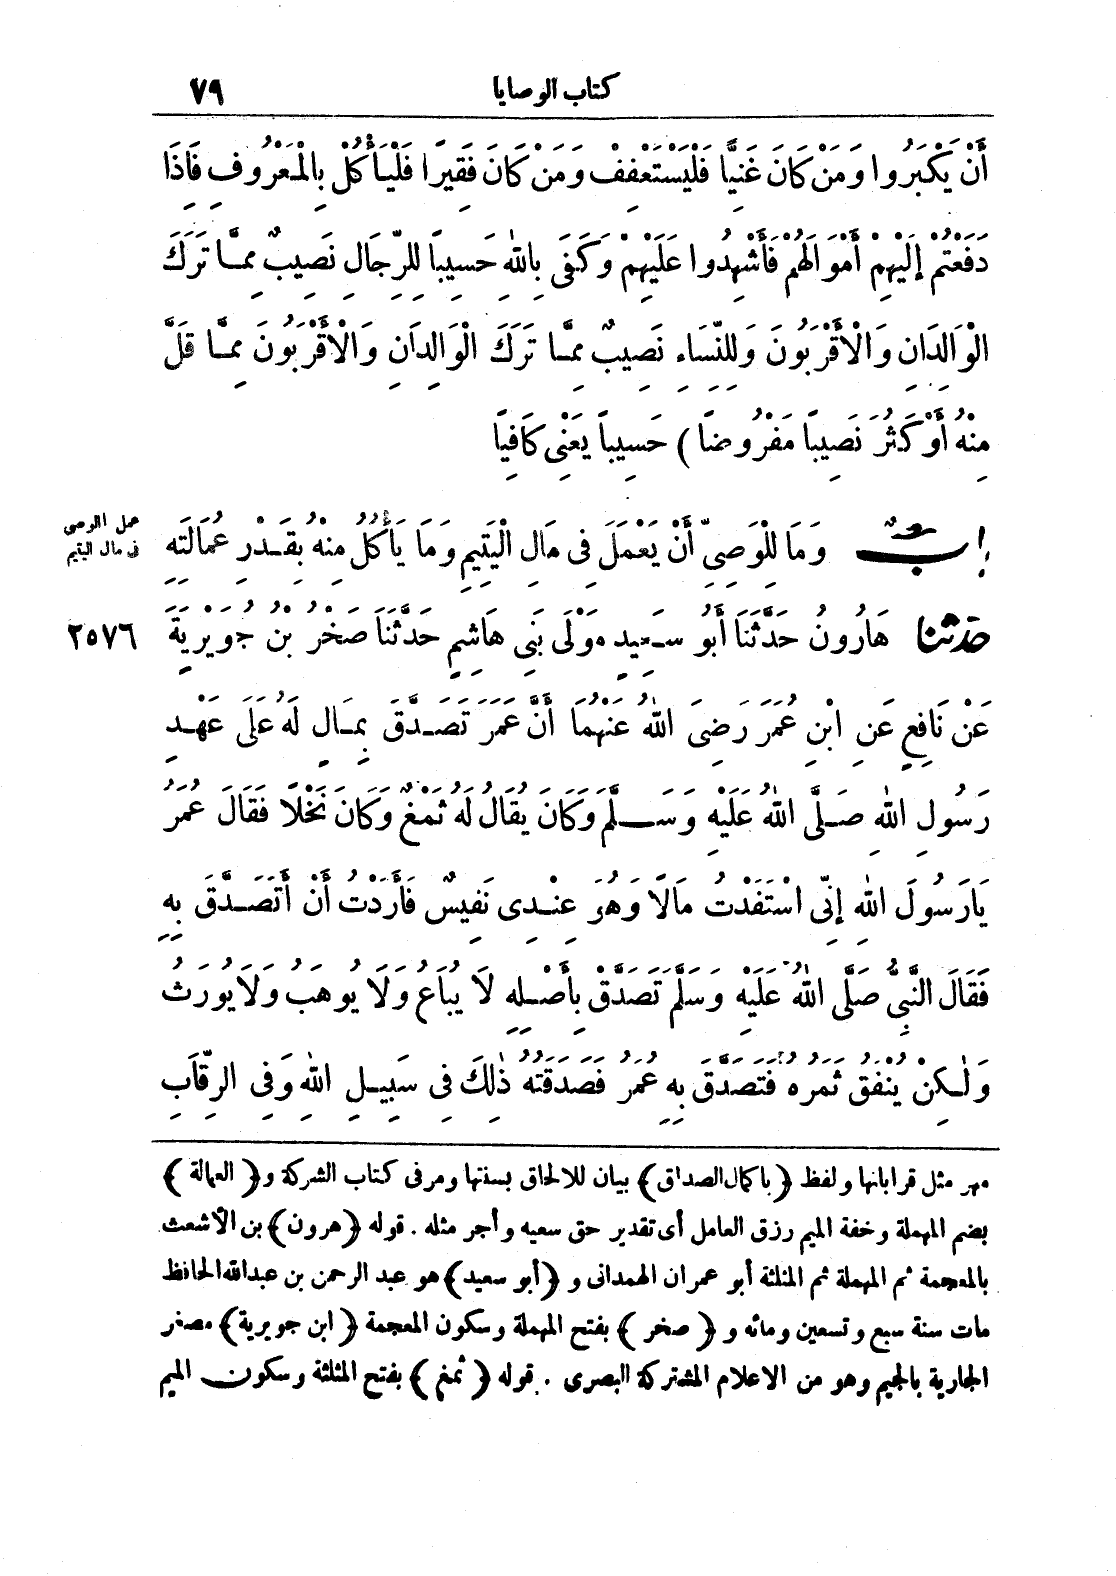 كتاب الوصايا
٧٩
أَنْ يَكْبَرُوا وَمَنْ كَانَ غَنِيًّا فَلْيَسْتَعْفِفْ وَمَنْ كَانَ فَقِيرًا فَلْيَأْكُلْ بِالْمَعْرُوفِ فَإِذَا
دَفَعْتُمْ إِلَيْهِمْ أَمْوَالَهُمْ فَأَشْهِدُوا عَلَيْهِمْ وَكَفَى بِاللهِ حَسِيبًا لِلرِّجَالِ نَصِيبٌ مِمَّا تَرَكَ
الْوَالِدَانِ وَالْأَقْرَبُونَ وَلِلنِّسَاءِ نَصِيبٌ مِمَّا تَرَكَ الْوَالِدَانِ وَالْأَقْرَبُونَ مِمَّا قَلَّ
مِنْهُ أَوْ كَثُرَ نَصِيبًا مَفْرُوضًا ) حَسِيبًا يَعْنِى كَافِيًا
بَابٌ وَمَا لِلْوَصِىِّ أَنْ يَعْمَلَ فِى مَالِ الْيَتِيمِ وَمَا يَأْكُلُ مِنْهُ بِقَدْرِ عُمَالَتِهِ
عمل الوصى
فى مال اليتيم
حَدَّثَنَا هَارُونُ حَدَّثَنَا أَبُو سَعِيدٍ مَوْلَى بَنِى هَاشِمٍ حَدَّثَنَا صَخْرُ بْنُ جُوَيْرِيَةَ
٢٥٧٦
عَنْ نَافِعٍ عَنِ ابْنِ عُمَرَ رَضِىَ اللهُ عَنْهُمَا أَنَّ عُمَرَ تَصَدَّقَ بِمَالٍ لَهُ عَلَى عَهْدِ
رَسُولِ اللهِ صَلَّى اللهُ عَلَيْهِ وَسَلَّمَ وَكَانَ يُقَالُ لَهُ ثَمْغٌ وَكَانَ نَخْلًا فَقَالَ عُمَرُ
يَارَسُولَ اللهِ إِنِّى اسْتَفَدْتُ مَالًا وَهُوَ عِنْدِى نَفِيسٌ فَأَرَدْتُ أَنْ أَتَصَدَّقَ بِهِ
فَقَالَ النَّبِىُّ صَلَّى اللهُ عَلَيْهِ وَسَلَّمَ تَصَدَّقْ بِأَصْلِهِ لَا يُبَاعُ وَلَا يُوهَبُ وَلَا يُورَثُ
وَلٰكِنْ يُنْفَقُ ثَمَرُهُ فَتَصَدَّقَ بِهِ عُمَرُ فَصَدَقَتُهُ ذٰلِكَ فِى سَبِيلِ اللهِ وَفِى الرِّقَابِ
مهر مثل قراباتها ولفظ ﴿باكمال الصداق﴾ بيان للالحاق بسنتها ومر فى كتاب الشركة و﴿العمالة﴾
بضم المهملة وخفة الميم رزق العامل أى تقدير حق سعيه وأجر مثله . قوله ﴿هرون﴾ بن الأشعث
بالمعجمة ثم المهملة ثم المثلثة أبو عمران الهمدانى و﴿أبو سعيد﴾ هو عبد الرحمن بن عبدالله الحافظ
مات سنة سبع وتسعين ومائه و﴿صخر﴾ بفتح المهملة وسكون المعجمة ﴿ابن جويرية﴾ مصغر
الجارية بالجيم وهو من الاعلام المشتركة البصرى . قوله ﴿ثمغ﴾ بفتح المثلثة وسكون الميم